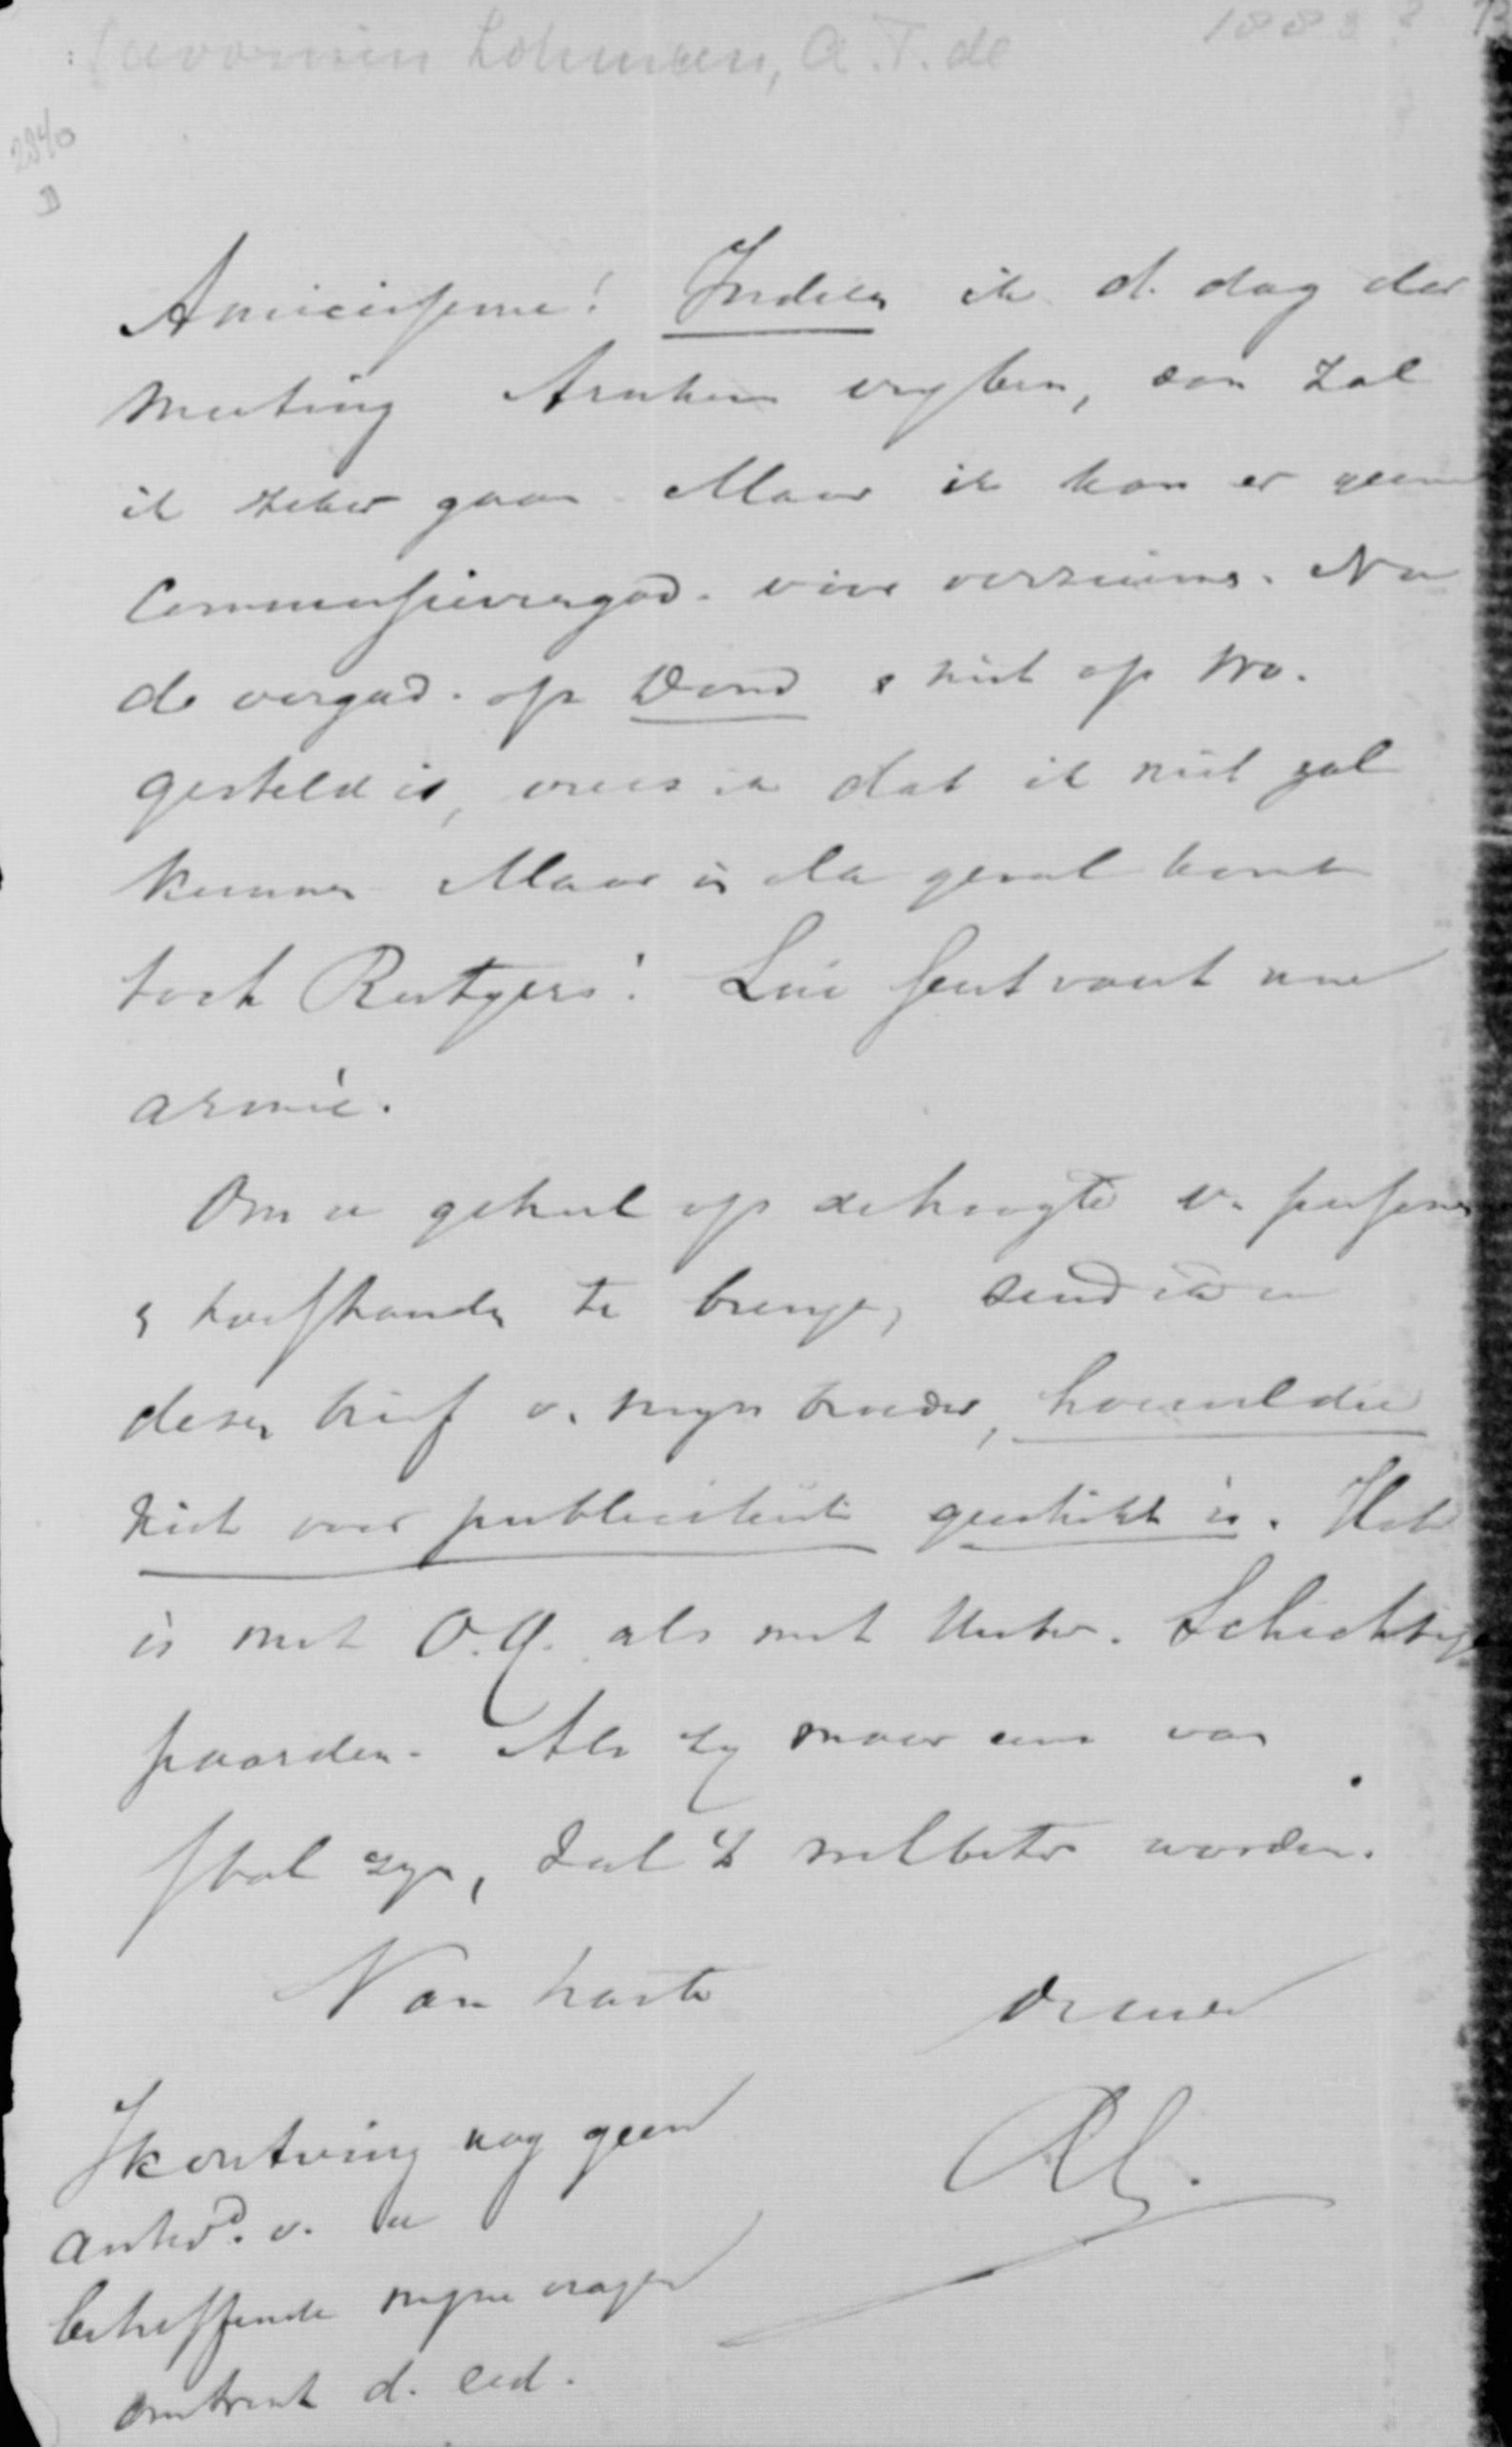 Savornin Lohman, A. F. de 1883?
2840
D
Amicissime! Indien ik d. dag der
meeting Arnhem vrij ben, dan zal
ik zeker gaan. Maar ik kan er geen
Commissievergad. voor verzuimen. Nu
de vergad. op Dond & niet op Wo.
gesteld is, vrees ik dat ik niet zal
kunnen. Maar in dat geval komt
toch Rutgers! Lui seul vaut une
armée.
Om u geheel op de hoogte v. personen
& toestanden te brengen, zend ik u
dezen brief v. mijn broeder, hoewel die
niet voor publiciteit geschikt is. Het
is met O.I. als met Utr. Schichtige
paarden. Als zij maar eens van
stal zijn, zal 't wel beter worden.
Van harte
de uwe
AL.
Ik ontving nog geen
antwd. v. u
betreffende mijne vragen
omtrent d. eed.